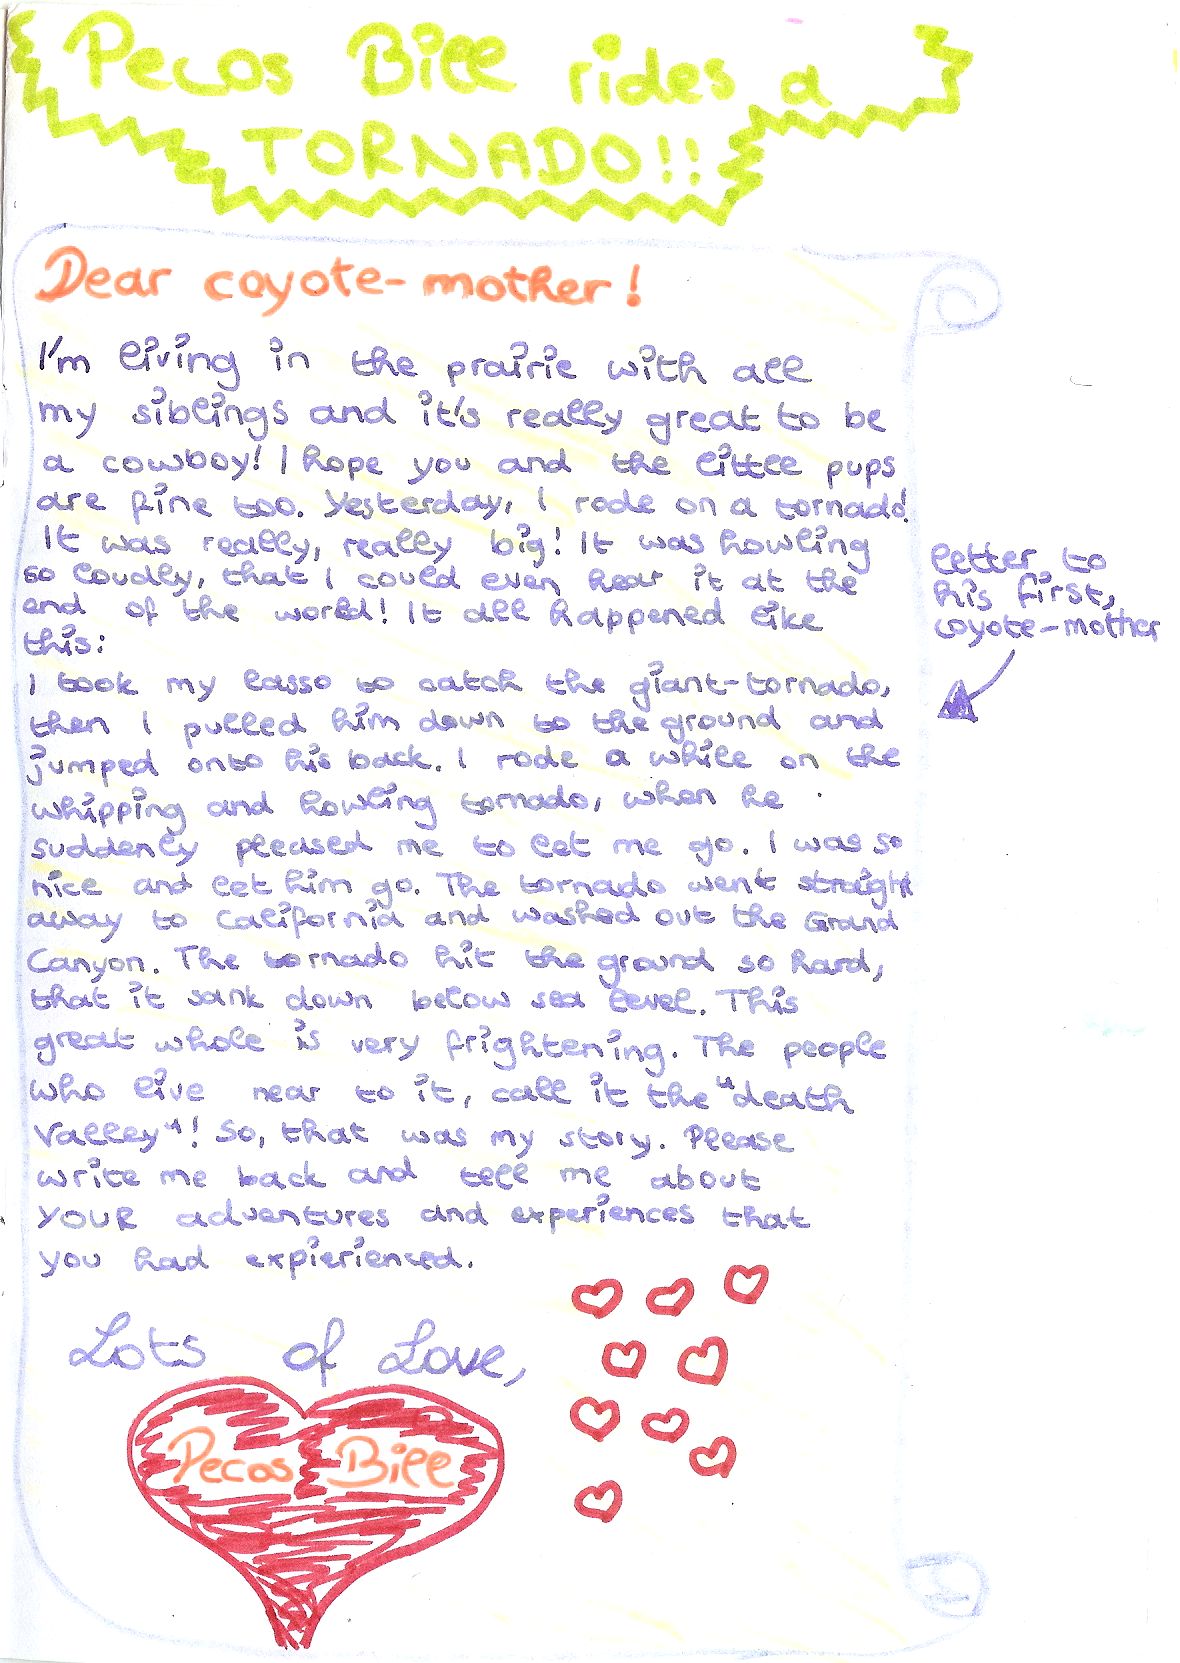 Pecos Bill rides a
TORNADO!!
Dear coyote-mother!
I'm living in the prairie with all
my siblings and it's really great to be
a cowboy! I hope you and the little pups
are fine too. Yesterday, I rode on a tornado!
It was really, really big! It was howling
so loudly, that I could even hear it at the
end of the world! It all happened like
this:
I took my lasso to catch the giant-tornado,
then I pulled him down to the ground and
jumped onto his back. I rode a while on the
whipping and howling tornado, when he
suddenly pleased me to let me go. I was so
nice and let him go. The tornado went straight
away to California and washed out the Grand
Canyon. The tornado hit the ground so hard,
that it sank down below sea level. This
great whole is very frightening. The people
who live near to it, call it the "death
Valley"! So, that was my story. Please
write me back and tell me about
YOUR adventures and experiences that
you had expierienced.
Lots of Love,
Pecos Bill
letter to
his first,
coyote-mother